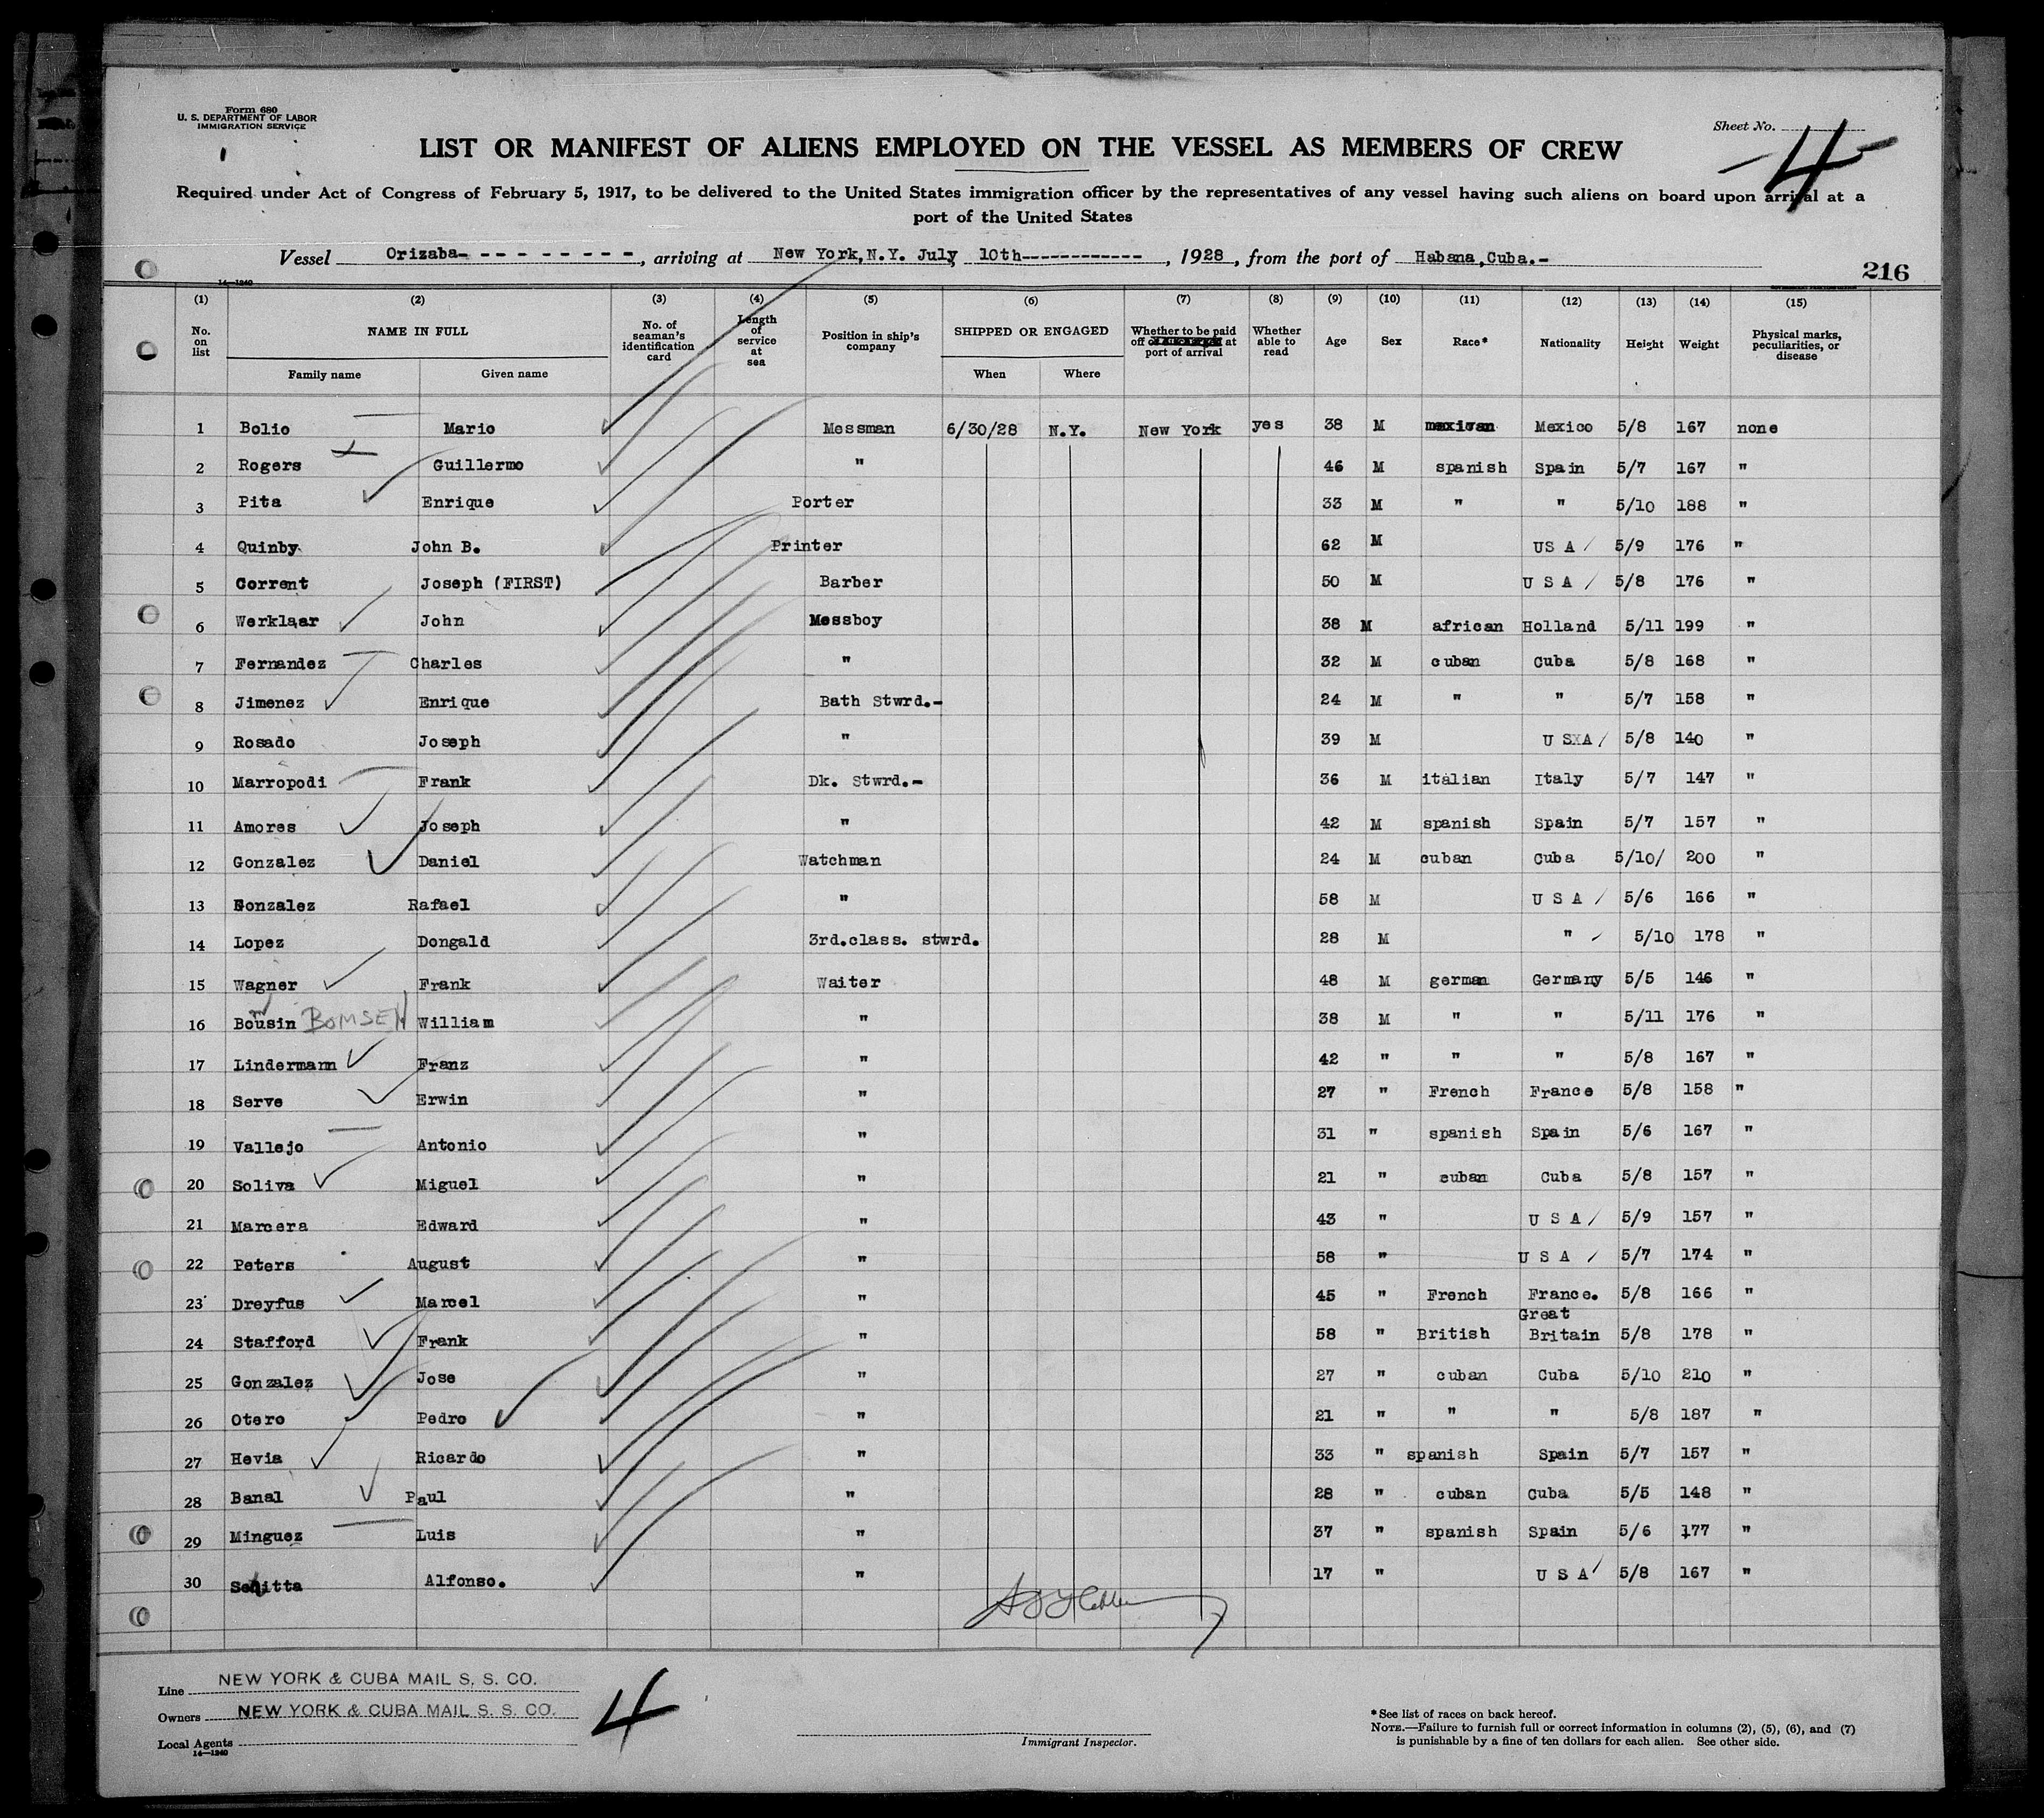 Form 680
U. S. DEPARTMENT OF LABOR
IMMIGRATION SERVICE
Sheet No. 4
LIST OR MANIFEST OF ALIENS EMPLOYED ON THE VESSEL AS MEMBERS OF CREW
Required under Act of Congress of February 5, 1917, to be delivered to the United States immigration officer by the representatives of any vessel having such aliens on board upon arrival at a
port of the United States
Vessel Orizaba- - - - - - - - -, arriving at New York, N.Y. July 10th------------, 1928, from the port of Habana, Cuba.-
216
14—1240
(1) (2) (3) (4) (5) (6) (7) (8) (9) (10) (11) (12) (13) (14) (15)
No. on list NAME IN FULL Family name Given name No. of seaman's identification card Length of service at sea Position in ship's company SHIPPED OR ENGAGED When Where Whether to be paid off at port of arrival Whether able to read Age Sex Race* Nationality Height Weight Physical marks, peculiarities, or disease
1 Bolio Mario Messman 6/30/28 N.Y. New York yes 38 M mexican Mexico 5/8 167 none
2 Rogers Guillermo " 46 M spanish Spain 5/7 167 "
3 Pita Enrique Porter 33 M " " 5/10 188 "
4 Quinby John B. Printer 62 M US A 5/9 176 "
5 Corrent Joseph (FIRST) Barber 50 M U S A 5/8 176 "
6 Werklaar John Messboy 38 M african Holland 5/11 199 "
7 Fernandez Charles " 32 M cuban Cuba 5/8 168 "
8 Jimenez Enrique Bath Stwrd.- 24 M " " 5/7 158 "
9 Rosado Joseph " 39 M U SXA 5/8 140 "
10 Marropodi Frank Dk. Stwrd.- 36 M italian Italy 5/7 147 "
11 Amores Joseph " 42 M spanish Spain 5/7 157 "
12 Gonzalez Daniel Watchman 24 M cuban Cuba 5/10/ 200 "
13 Gonzalez Rafael " 58 M U S A 5/6 166 "
14 Lopez Dongald 3rd.class. stwrd. 28 M " 5/10 178 "
15 Wagner Frank Waiter 48 M german Germany 5/5 146 "
16 Bousin BOMSEN William " 38 M " " 5/11 176 "
17 Lindermann Franz " 42 " " " 5/8 167 "
18 Serve Erwin " 27 " French France 5/8 158 "
19 Vallejo Antonio " 31 " spanish Spain 5/6 167 "
20 Soliva Miguel " 21 " cuban Cuba 5/8 157 "
21 Marcera Edward " 43 " U S A 5/9 157 "
22 Peters August " 58 " U S A 5/7 174 "
23 Dreyfus Marcel " 45 " French France. 5/8 166 "
24 Stafford Frank " 58 " British Great Britain 5/8 178 "
25 Gonzalez Jose " 27 " cuban Cuba 5/10 210 "
26 Otero Pedro " 21 " " " 5/8 187 "
27 Hevia Ricardo " 33 " spanish Spain 5/7 157 "
28 Banal Paul " 28 " cuban Cuba 5/5 148 "
29 Minguez Luis " 37 " spanish Spain 5/6 177 "
30 Alfonso. " 17 " U S A 5/8 167 "
Line NEW YORK & CUBA MAIL S. S. CO.
Owners NEW YORK & CUBA MAIL S. S. CO.
Local Agents
14—1240
4
Immigrant Inspector.
*See list of races on back hereof.
NOTE.—Failure to furnish full or correct information in columns (2), (5), (6), and (7)
is punishable by a fine of ten dollars for each alien. See other side.